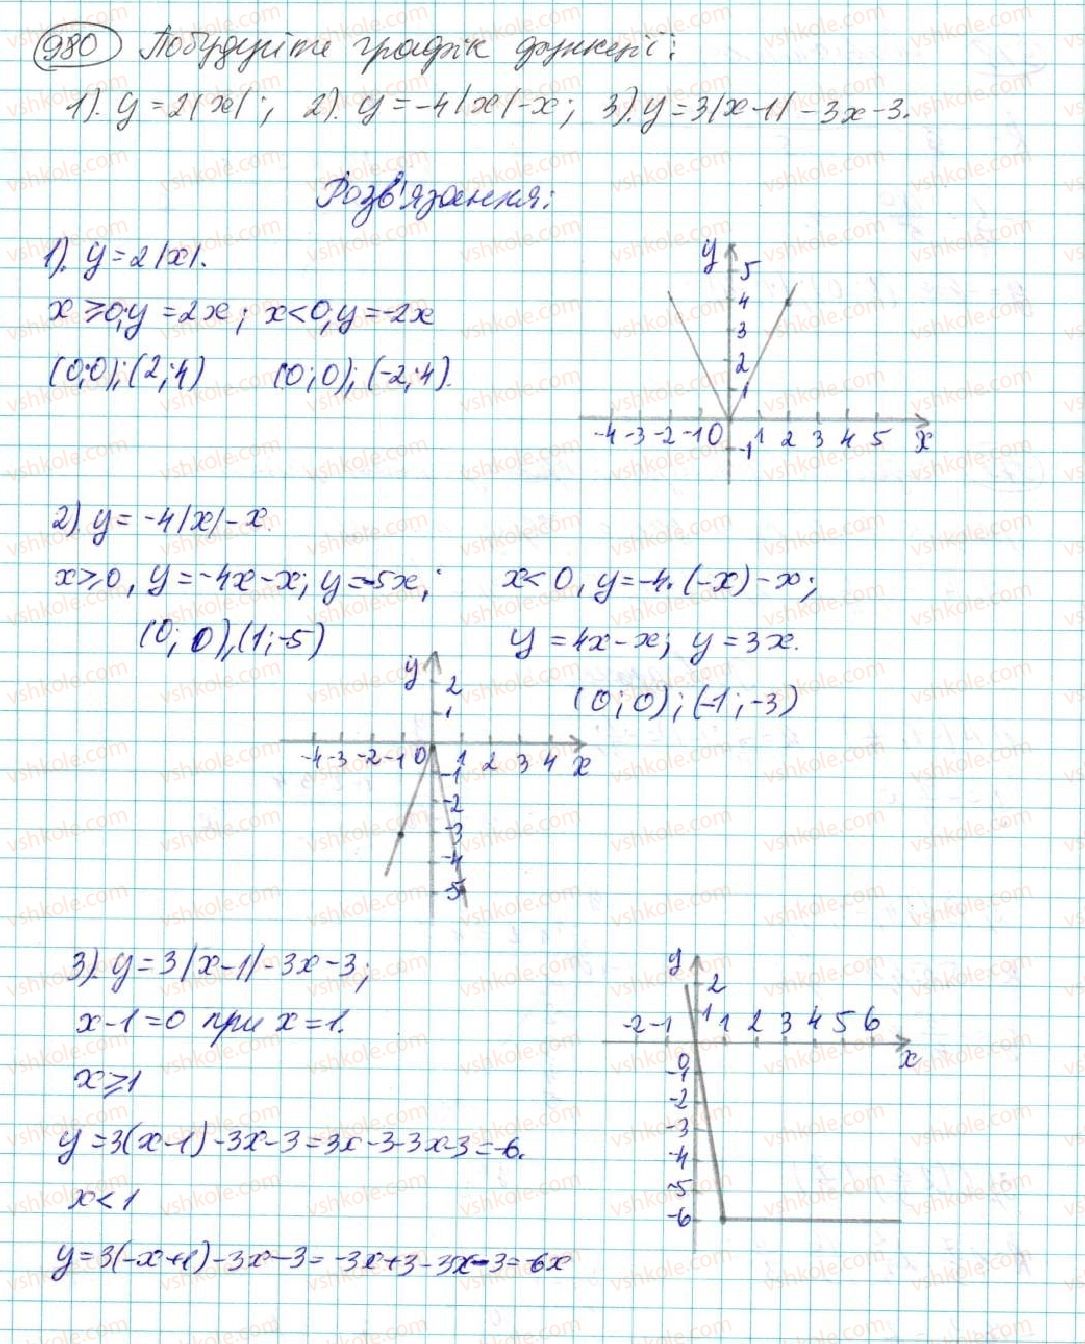 980 Побудуйте графік функції:
1). y = 2|x|; 2). y = -4|x|-x; 3). y = 3|x-1|-3x-3.
Розв'язання:
1). y = 2|x|.
x ≥ 0; y = 2x; x < 0, y = -2x
(0;0); (2;4) (0;0); (-2;4).
y
5
4
3
2
1
-4 -3 -2 -1 0 1 2 3 4 5 x
-1
2). y = -4|x|-x.
x ≥ 0, y = -4x-x; y = -5x; x < 0, y = -4·(-x)-x;
(0; 0), (1;-5) y = 4x-x; y = 3x.
(0;0); (-1;-3)
y
2
1
-4 -3 -2 -1 0 1 2 3 4 x
-1
-2
-3
-4
-5
3) y = 3|x-1|-3x-3;
x-1=0 при x=1.
x ≥ 1
y = 3(x-1)-3x-3 = 3x-3-3x-3 = -6.
x < 1
y = 3(-x+1)-3x-3 = -3x+3-3x-3 = -6x
y
2
1
-2 -1 1 2 3 4 5 6
0 x
-1
-2
-3
-4
-5
-6
vshkole.com